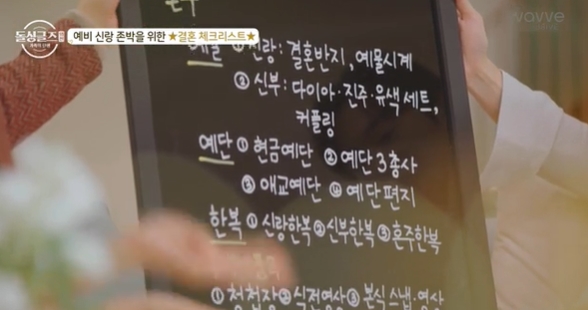 돌싱글즈
wavve
예비 신랑 존박을 위한 ★결혼 체크리스트★
예물 ① 신랑: 결혼반지, 예물시계
② 신부: 다이아·진주·유색 세트,
커플링
예단 ① 현금예단 ② 예단 3총사
③ 애교예단 ④ 예단 편지
한복 ① 신랑한복 ② 신부한복 ③ 혼주한복
① 청첩장 ② 식전영상 ③ 본식 스냅·영상